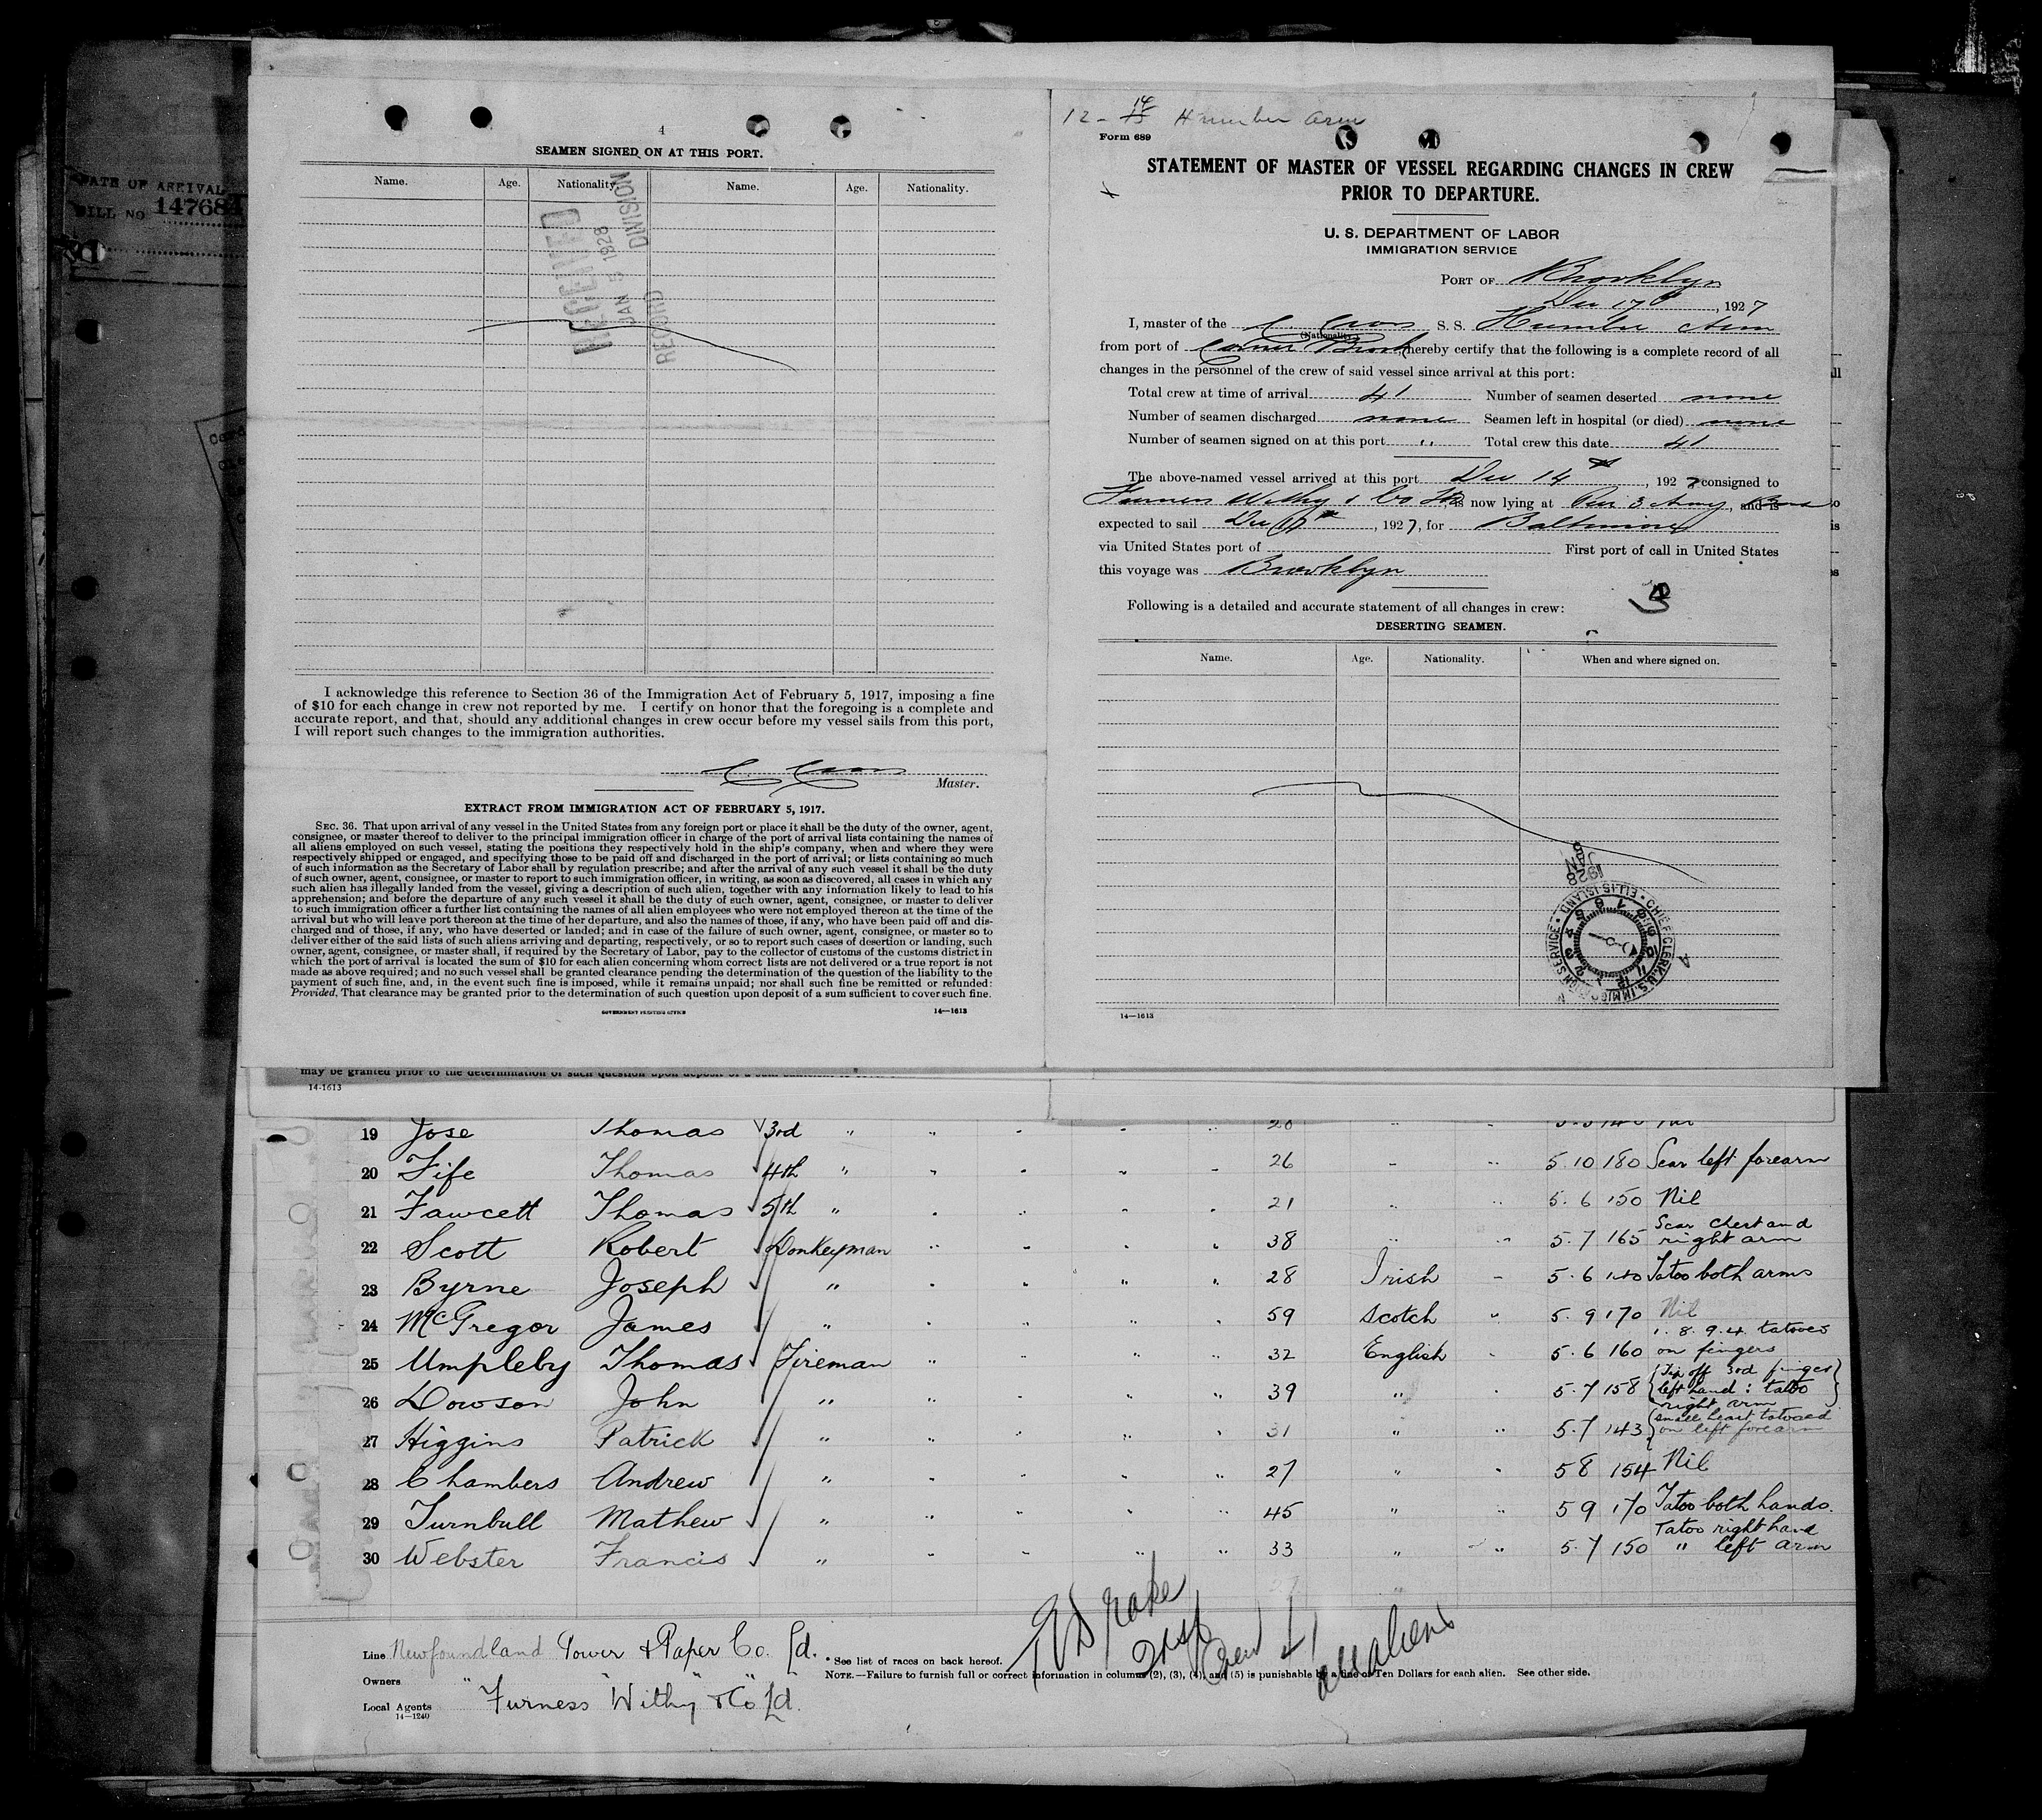 DATE OF ARRIVAL
BILL NO 147684
4
SEAMEN SIGNED ON AT THIS PORT.
Name. Age. Nationality. Name. Age. Nationality.
RECEIVED
JAN 5 1928
RECORD DIVISION
I acknowledge this reference to Section 36 of the Immigration Act of February 5, 1917, imposing a fine
of $10 for each change in crew not reported by me. I certify on honor that the foregoing is a complete and
accurate report, and that, should any additional changes in crew occur before my vessel sails from this port,
I will report such changes to the immigration authorities.
Master.
EXTRACT FROM IMMIGRATION ACT OF FEBRUARY 5, 1917.
SEC. 36. That upon arrival of any vessel in the United States from any foreign port or place it shall be the duty of the owner, agent,
consignee, or master thereof to deliver to the principal immigration officer in charge of the port of arrival lists containing the names of
all aliens employed on such vessel, stating the positions they respectively hold in the ship's company, when and where they were
respectively shipped or engaged, and specifying those to be paid off and discharged in the port of arrival; or lists containing so much
of such information as the Secretary of Labor shall by regulation prescribe; and after the arrival of any such vessel it shall be the duty
of such owner, agent, consignee, or master to report to such immigration officer, in writing, as soon as discovered, all cases in which any
such alien has illegally landed from the vessel, giving a description of such alien, together with any information likely to lead to his
apprehension; and before the departure of any such vessel it shall be the duty of such owner, agent, consignee, or master to deliver
to such immigration officer a further list containing the names of all alien employees who were not employed thereon at the time of the
arrival but who will leave port thereon at the time of her departure, and also the names of those, if any, who have been paid off and dis-
charged and of those, if any, who have deserted or landed; and in case of the failure of such owner, agent, consignee, or master so to
deliver either of the said lists of such aliens arriving and departing, respectively, or so to report such cases of desertion or landing, such
owner, agent, consignee, or master shall, if required by the Secretary of Labor, pay to the collector of customs of the customs district in
which the port of arrival is located the sum of $10 for each alien concerning whom correct lists are not delivered or a true report is not
made as above required; and no such vessel shall be granted clearance pending the determination of the question of the liability to the
payment of such fine, and, in the event such fine is imposed, while it remains unpaid; nor shall such fine be remitted or refunded:
Provided, That clearance may be granted prior to the determination of such question upon deposit of a sum sufficient to cover such fine.
GOVERNMENT PRINTING OFFICE 14—1613
12 - 14 Humber Arm
Form 689
STATEMENT OF MASTER OF VESSEL REGARDING CHANGES IN CREW
PRIOR TO DEPARTURE.
U. S. DEPARTMENT OF LABOR
IMMIGRATION SERVICE
PORT OF Brooklyn
Dec 17th, 1927
I, master of the S. S. Humber Arm
(Nationality)
from port of Corner Brook, hereby certify that the following is a complete record of all
changes in the personnel of the crew of said vessel since arrival at this port:
Total crew at time of arrival 41 Number of seamen deserted none
Number of seamen discharged none Seamen left in hospital (or died) none
Number of seamen signed on at this port " Total crew this date 41
The above-named vessel arrived at this port Dec 14th, 1927 consigned to
Furness Withy & Co Ltd is now lying at Pier 3 Army, and is
expected to sail Dec 17th, 1927, for Baltimore
via United States port of First port of call in United States
this voyage was Brooklyn
Following is a detailed and accurate statement of all changes in crew:
DESERTING SEAMEN.
Name. Age. Nationality. When and where signed on.
1928 JAN
CHIEF CLERK, U.S. IMMIGRATION SERVICE ELLIS ISLAND
14—1613
may be granted prior to the determination of such question upon deposit of a sum
14-1613
19 Jose Thomas 3rd " " " " " " "
20 Fife Thomas 4th " " " " " 26 " " 5.10 180 Scar left forearm
21 Fawcett Thomas 5th " " " " " 21 " " 5.6 150 Nil
22 Scott Robert Donkeyman " " " " 38 " " 5.7 165 Scar chest and right arm
23 Byrne Joseph " " " " " 28 Irish " 5.6 140 Tatoo both arms
24 McGregor James " " " " " 59 Scotch " 5.9 170 Nil
25 Umpleby Thomas Fireman " " " " 32 English " 5.6 160 1.8.9.4. tatooed on fingers
26 Dowson John " " " " " 39 " " 5.7 158 Tip off 3rd finger left hand: tatoo right arm
27 Higgins Patrick " " " " " 31 " " 5.7 143 small heart tatooed on left forearm
28 Chambers Andrew " " " " " 27 " " 5 8 154 Nil
29 Turnbull Mathew " " " " " 45 " " 5 9 170 Tatoo both hands.
30 Webster Francis " " " " " 33 " " 5.7 150 Tatoo right hand " left arm
Line Newfoundland Power & Paper Co. Ld.
* See list of races on back hereof.
NOTE.—Failure to furnish full or correct information in columns (2), (3), (4), and (5) is punishable by a fine of Ten Dollars for each alien. See other side.
Owners " " " "
Local Agents Furness Withy & Co Ld.
14—1240
Drake
Crew 41
all aliens